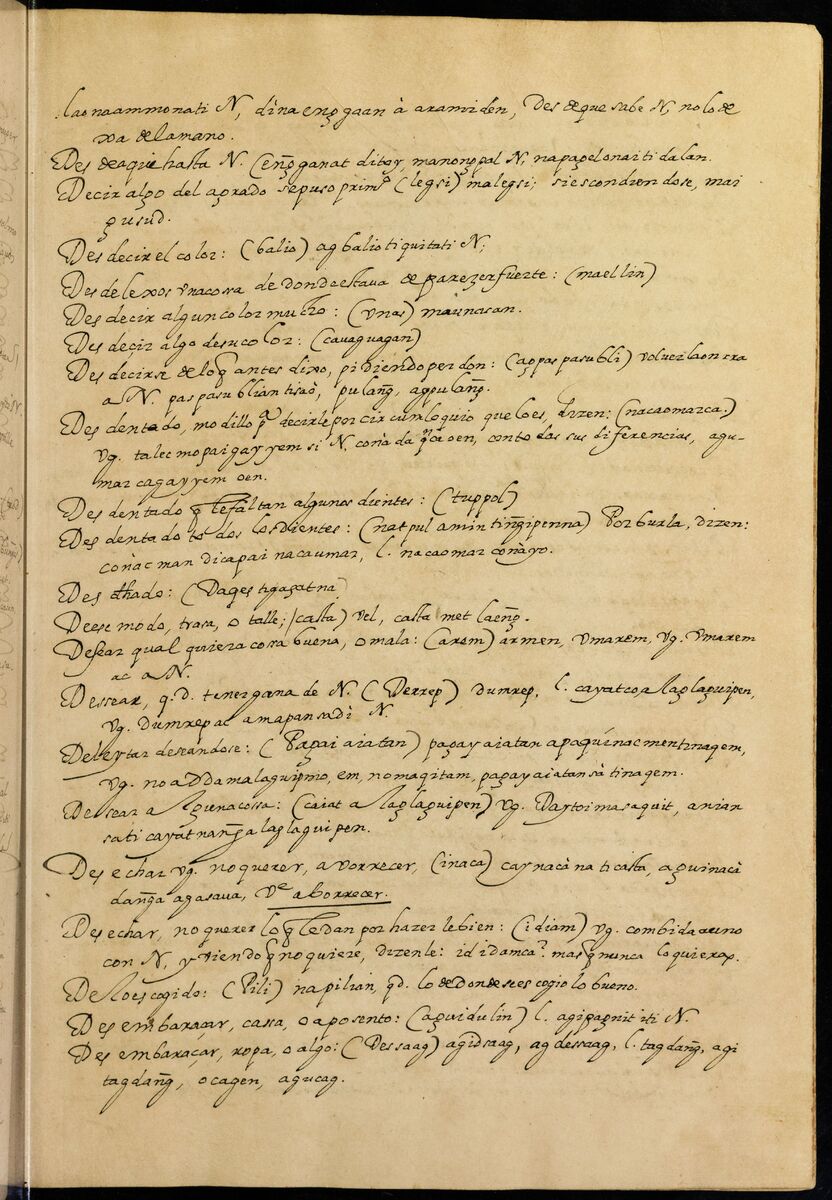 laonaammonati N, dinaengaan à aramiden, Desdeque sabe N, nolode
xa delamano.
Desdeaque hasta N. (enganat ditoy, manongpal N, napagelonaiti dalan.
Decir algo del agrado sepuso prim.º (legsi) malegsi; si escondiendose, mai
gusud.
Des decir el color: (balio) agbaliotiquitati N;
Des de lexos una cosa de donde estava de parezer fuerte: (maellin)
Des decir algun color mucho: (unas) maunasan.
Des deçir algo de su color: (cauaguagan)
Des decirse delo q̃ antes dixo, pidiendo perdon: (agpaspasubli) volverla contra
a N. paspasubliantisaò, pulang̃, agpulang̃.
Des dentado, modillo pª decirle por circumloquio que lo es, dizen: (nacaomarca.)
vg. talecmopaigayyem si N. conàda oen, con todas sus diferencias, agu-
marcagayyem oen.
Des dentado q̃ le faltan algunos dientes: (tuppol)
Des dentado todos los dientes: (natpulamin ting̃ipenna) Por burla, dizen:
conàc man dicapai nacaumar, l. nacaomar conàyo.
Desdhado: (Dagestigagatna
Deese modo, trasa, o talle; (casta) vel, casta met laeng̃.
Desear qualquiera cosa buena, o mala: (arem) armen, umarem, vg. umarem
ac a N.
Dessear, q.d. tener gana de N. (Derrep) dumrep, l. cayatco a laglaguipen,
vg. dumrepac amapansadi N.
Deleytar deseandose: (Pagaiaiatan) pagayaiatan apaquinacmentinagem,
vg. no adda malaguipmo, em, nomagitam, pagayaiatansà tinagem.
Dessear alguna cossa: (caiat a laglaguipen) vg. Daytoi masaquit, anian
sati cayatnang̃a laglaguipen.
Desechar vg. no querer, avorrecer, (inaca) caynacàna ti casta, aguinacà
dang̃a agasaua, Vᵉ aborrecer.
Desechar, no querer lo q̃ le dan por hazerle bien: (idiam) vg. combidaauno
con N, y viendo q̃ no quiere, dizenle: ididamca? mas q̃ nunca lo quieras.
Deloescogido: (Pili) napilian, qd. lo de donde se escogio lo bueno.
Desembaraçar, cassa, o aposento: (aguidulin) l. agipagnit iti N.
Desembaraçar, ropa, o algo: (Dessaag) agidsaag, agdessaag, l. tagdang̃, agi
tagdang̃, ocagen, agucag.